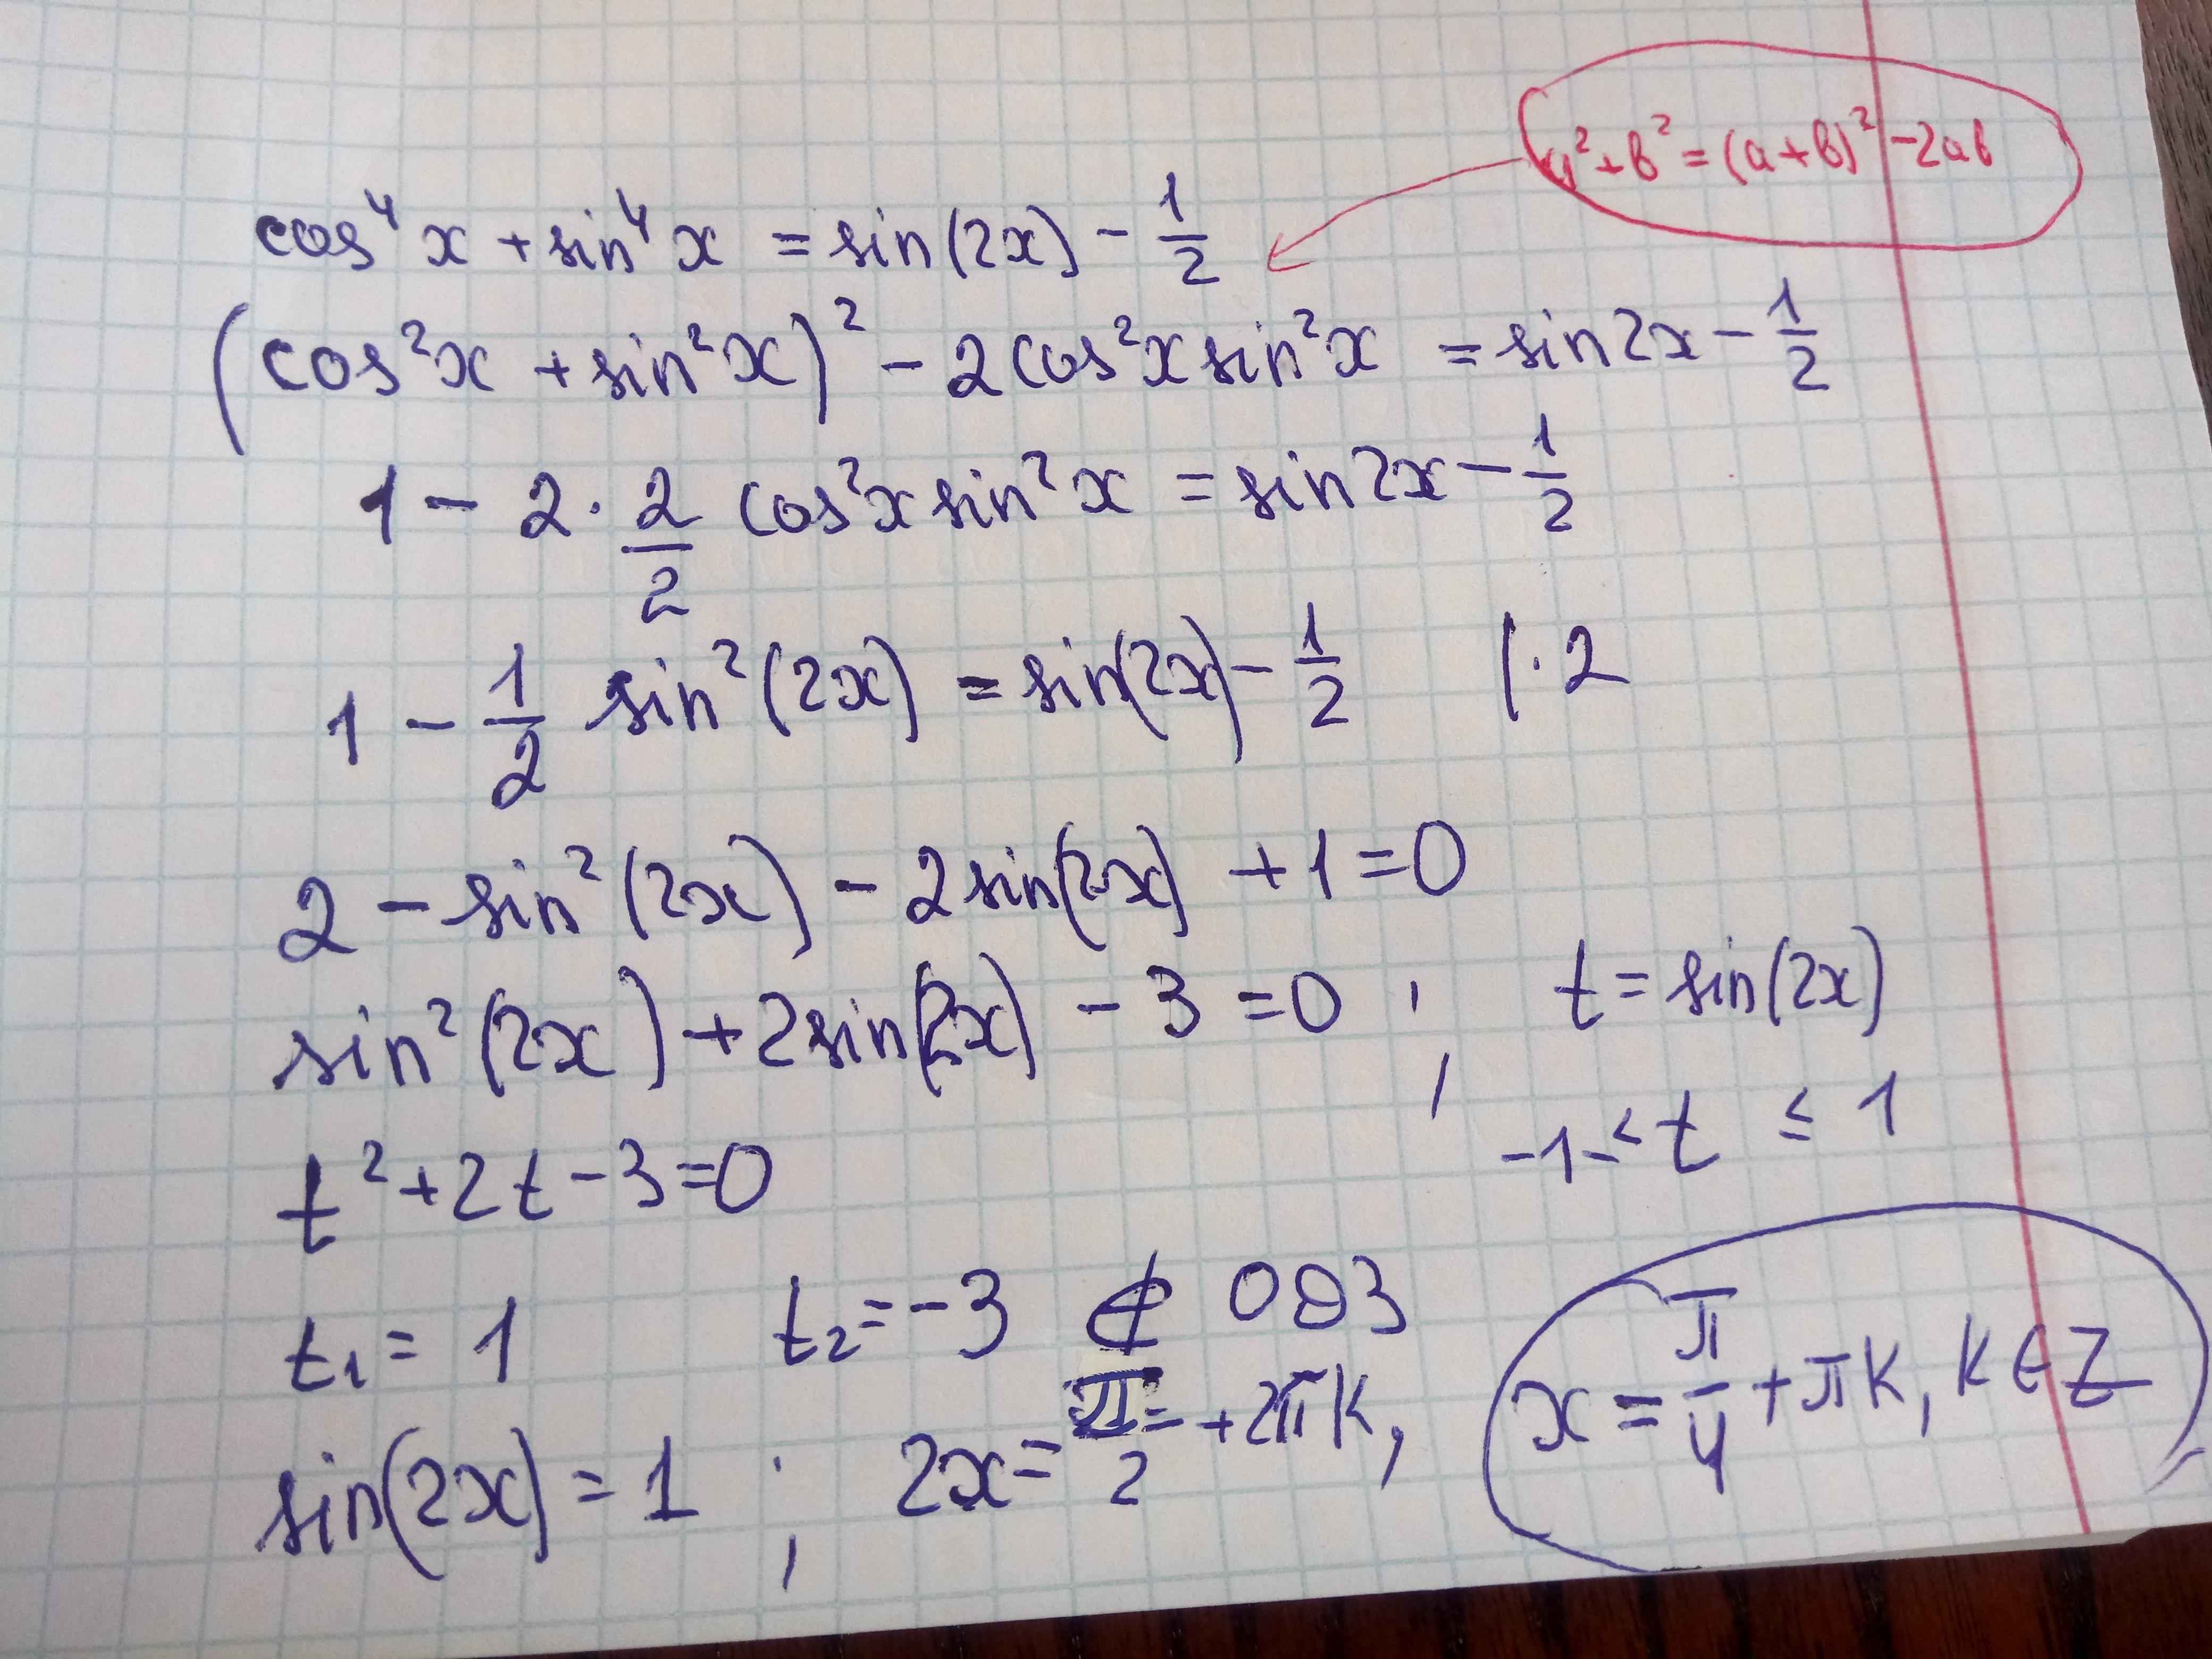 a² + b² = (a+b)² - 2ab
cos⁴x + sin⁴x = sin(2x) - 1/2
(cos²x + sin²x)² - 2cos²x sin²x = sin2x - 1/2
1 - 2 · 2/2 cos²x sin²x = sin2x - 1/2
1 - 1/2 sin²(2x) = sin(2x) - 1/2 | · 2
2 - sin²(2x) - 2sin(2x) + 1 = 0
sin²(2x) + 2sin(2x) - 3 = 0 ; t = sin(2x)
t² + 2t - 3 = 0 -1 ≤ t ≤ 1
t₁ = 1 t₂ = -3 ∉ ОДЗ
sin(2x) = 1 ; 2x = π/2 + 2πk, x = π/4 + πk, k ∈ Z